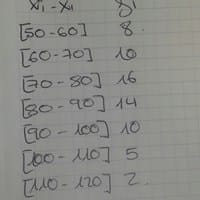 [50-60] 8
[60-70] 10
[70-80] 16
[80-90] 14
[90-100] 10
[100-110] 5
[110-120] 2